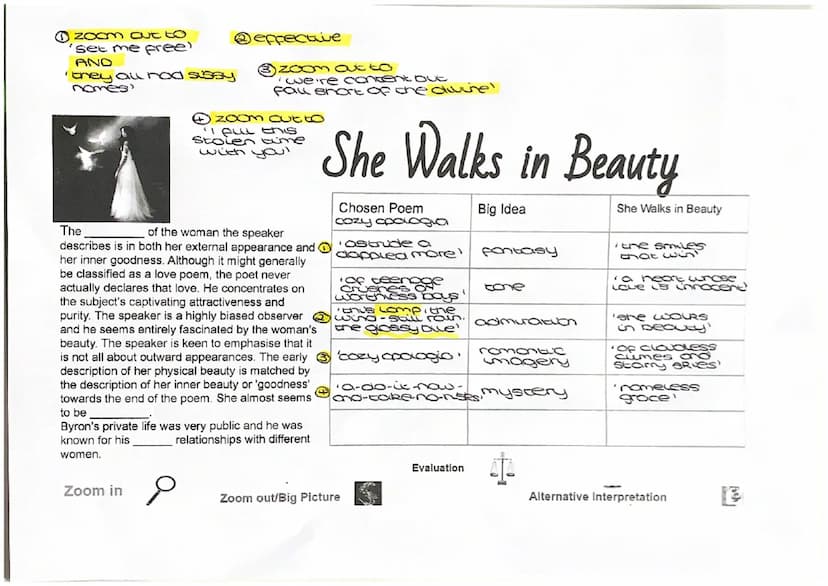 ① zoom out to
'set me free'
AND
'they all had sissy
names'
② effective
③ zoom out to
'we're content but
fall short of the divine'
④ zoom out to
'I fill this
stolen time
with you'
She Walks in Beauty
Chosen Poem
cozy apologia
Big Idea
She Walks in Beauty
① 'astride a
dappled mare'
fantasy
'the smiles
that win'
'of teenage
crushes on
worthless boys'
tone
'a heart whose
love is innocent'
② 'this lamp, the
wind-still rain,
the glossy blue'
admiration
'she walks
in beauty'
③ 'cozy apologia'
romantic
imagery
'of cloudless
climes and
starry skies'
④ 'a-do-it-now-
and-take-no-
mystery
'nameless
grace'
The __________ of the woman the speaker
describes is in both her external appearance and
her inner goodness. Although it might generally
be classified as a love poem, the poet never
actually declares that love. He concentrates on
the subject's captivating attractiveness and
purity. The speaker is a highly biased observer
and he seems entirely fascinated by the woman's
beauty. The speaker is keen to emphasise that it
is not all about outward appearances. The early
description of her physical beauty is matched by
the description of her inner beauty or 'goodness'
towards the end of the poem. She almost seems
to be __________.
Byron's private life was very public and he was
known for his ______ relationships with different
women.
Evaluation
Zoom in
Zoom out/Big Picture
Alternative Interpretation